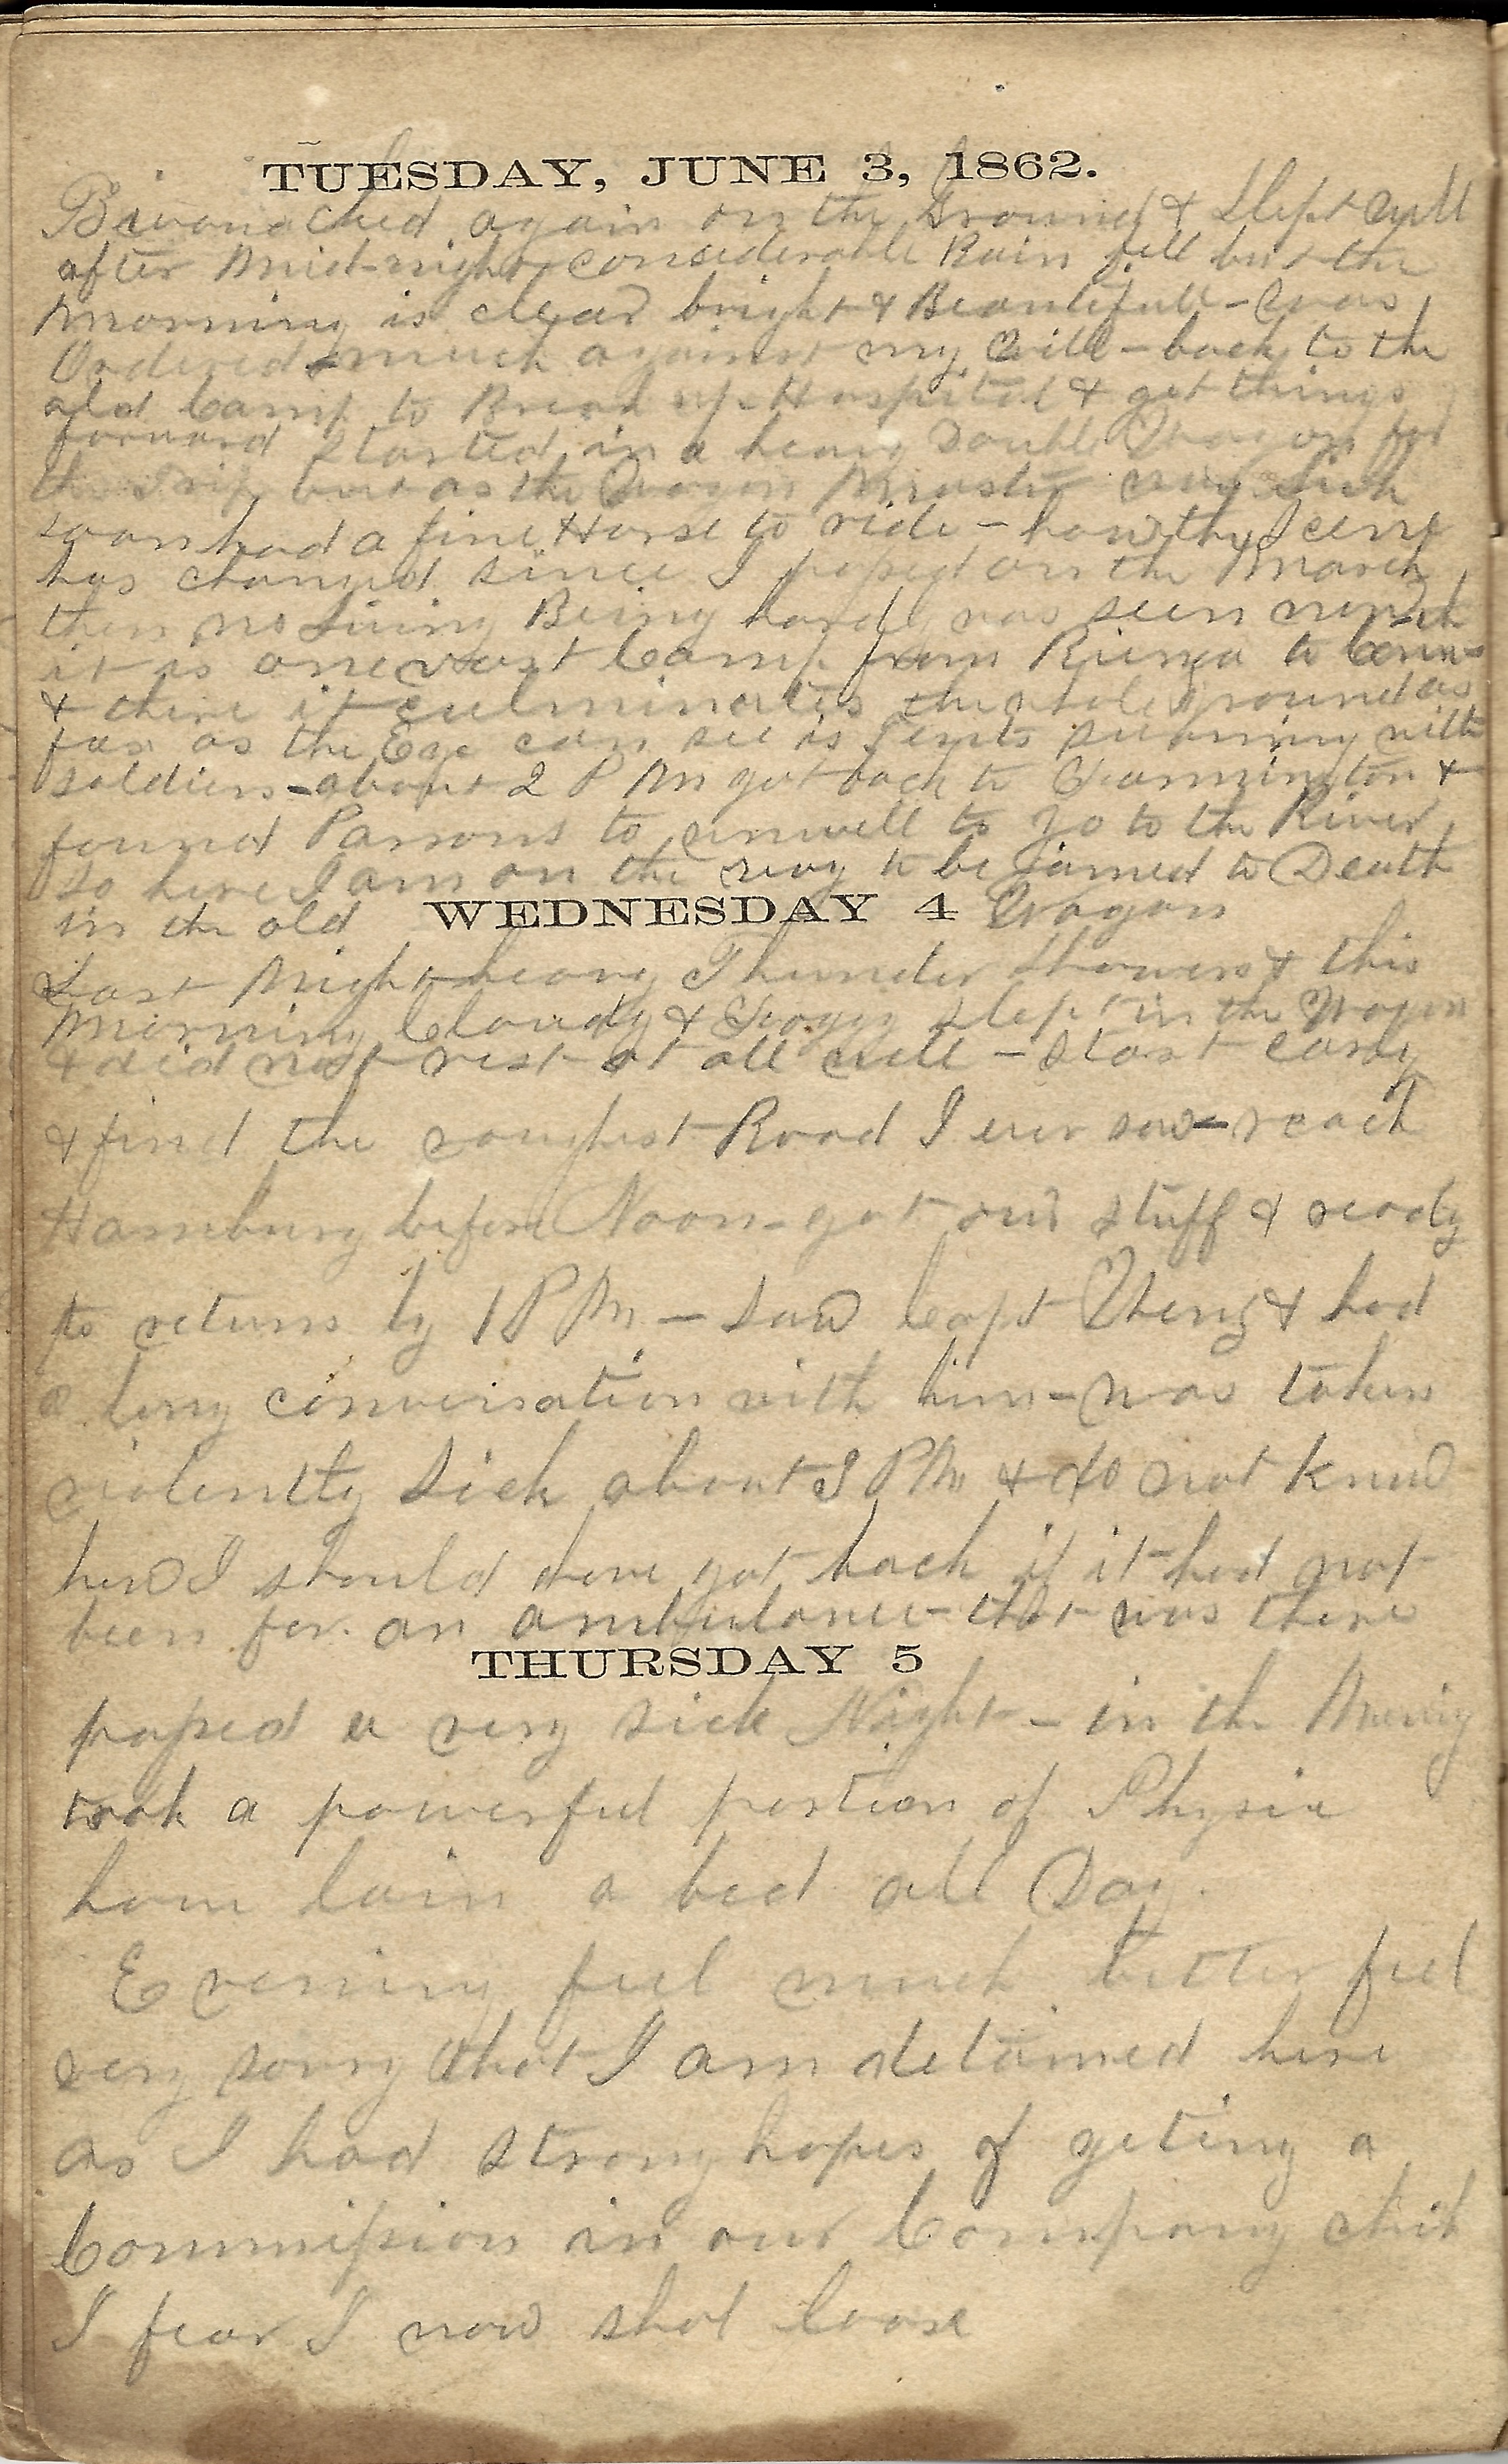 TUESDAY, JUNE 3, 1862.
Bivouacked again on the Ground & Slept well
after Mid-night considerable Rain fell but the
Morning is clear bright & Beautifull - was
Ordered much against my will - back to the
old Camp to Break up Hospital & get things
forward started in a heavy Double Wagon for
the trip but as the Wagon Master was sick
soon had a fine Horse to ride - how the Scene
has changed since I passed on the March
then no Living Being hardly was seen now
it is one vast Camp from Rienza to
& there it culminates the whole ground as
far as the Eye can see is Tents swarming with
soldiers - about 2 P M got back to Farmington &
found Parsons to unwell to go to the River
so here I am on the way to be jamed to Death
in the old Wagon
WEDNESDAY 4
Last Night heavy Thunder Showers & this
Morning Cloudy & Foggy slept in the Wagon
& did not rest at all well - start early
& find the roughest Road I ever saw - reach
Hamburg before Noon - got our stuff & ready
to return by 1 P M - Saw Capt & had
a long conversation with him - was taken
violently sick about 3 P M & do not know
how I should have got back if it had not
been for an ambulance that was there
THURSDAY 5
passed a very sick Night - in the Morning
took a powerful portion of Physic
have lain a bed all Day.
Evening feel much better feel
very sorry that I am detained here
as I had strong hopes of geting a
Commission in our Company which
I fear I now shal loose